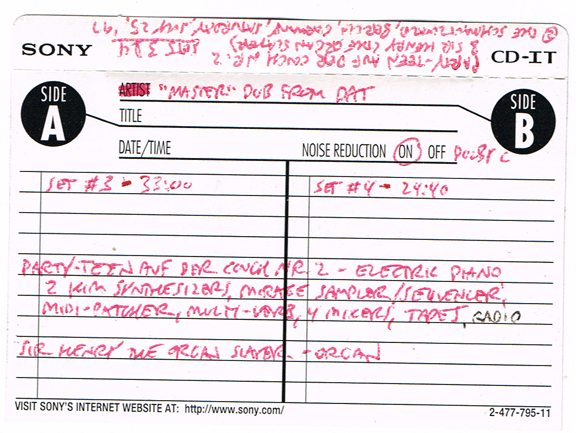 PARTY-TEEN AUF DER COUCH NR. 2
& SIR HENRY (THE ORGAN SLAYER) SETS 3 & 4
@ THE SCHMALTZWALD, BERLIN, GERMANY, SATURDAY, JULY 25, '97
SONY CD-IT
SIDE A
SIDE B
ARTIST "MASTER" DUB FROM DAT
TITLE
DATE/TIME NOISE REDUCTION ON OFF DOLBY C
SET #3 - 33:00 SET #4 - 24:40
PARTY-TEEN AUF DER COUCH NR. 2 - ELECTRIC PIANO
2 KIM SYNTHESIZERS, MIRAGE SAMPLER/SEQUENCER,
MIDI-PATCHER, MULTI-VERB, 4 MIXERS, TAPES, RADIO
SIR HENRY THE ORGAN SLAYER - ORGAN
VISIT SONY'S INTERNET WEBSITE AT: http://www.sony.com/ 2-477-795-11